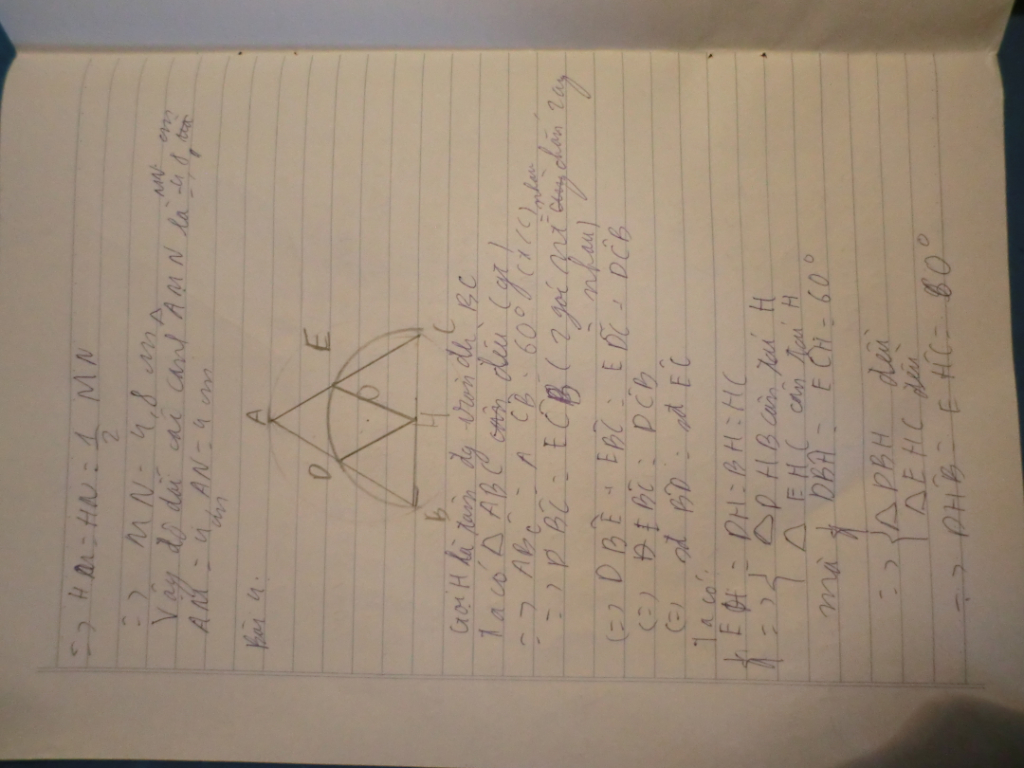 => HM = HN = 1/2 MN
=> MN = 4,8 cm
Vậy độ dài các cạnh △AMN là MN = 4,8 cm
AM = 4 cm AN = 4 cm
Bài 4.
A
D
E
O
B
H
C
Gọi H là tâm đg tròn đk BC
Ta có △ABC đều (gt)
=> ABC̑ = ACB̑ = 60° (t/c)
=> DBC̑ = ECB̑ (2 góc nt chắn cung bằng nhau)
<=> DBȆ + EBC̑ = EDC̑ + DCB̑
<=> EBC̑ = DCB̑
<=> sđ BD̑ = sđ EC̑
Ta có:
EH = DH = BH = HC
=> { △DHB cân tại H
△EHC cân tại H
mà DBĤ = ECH̑ = 60°
=> { △DBH đều
△EHC đều
=> DHB̑ = EHC̑ = 60°